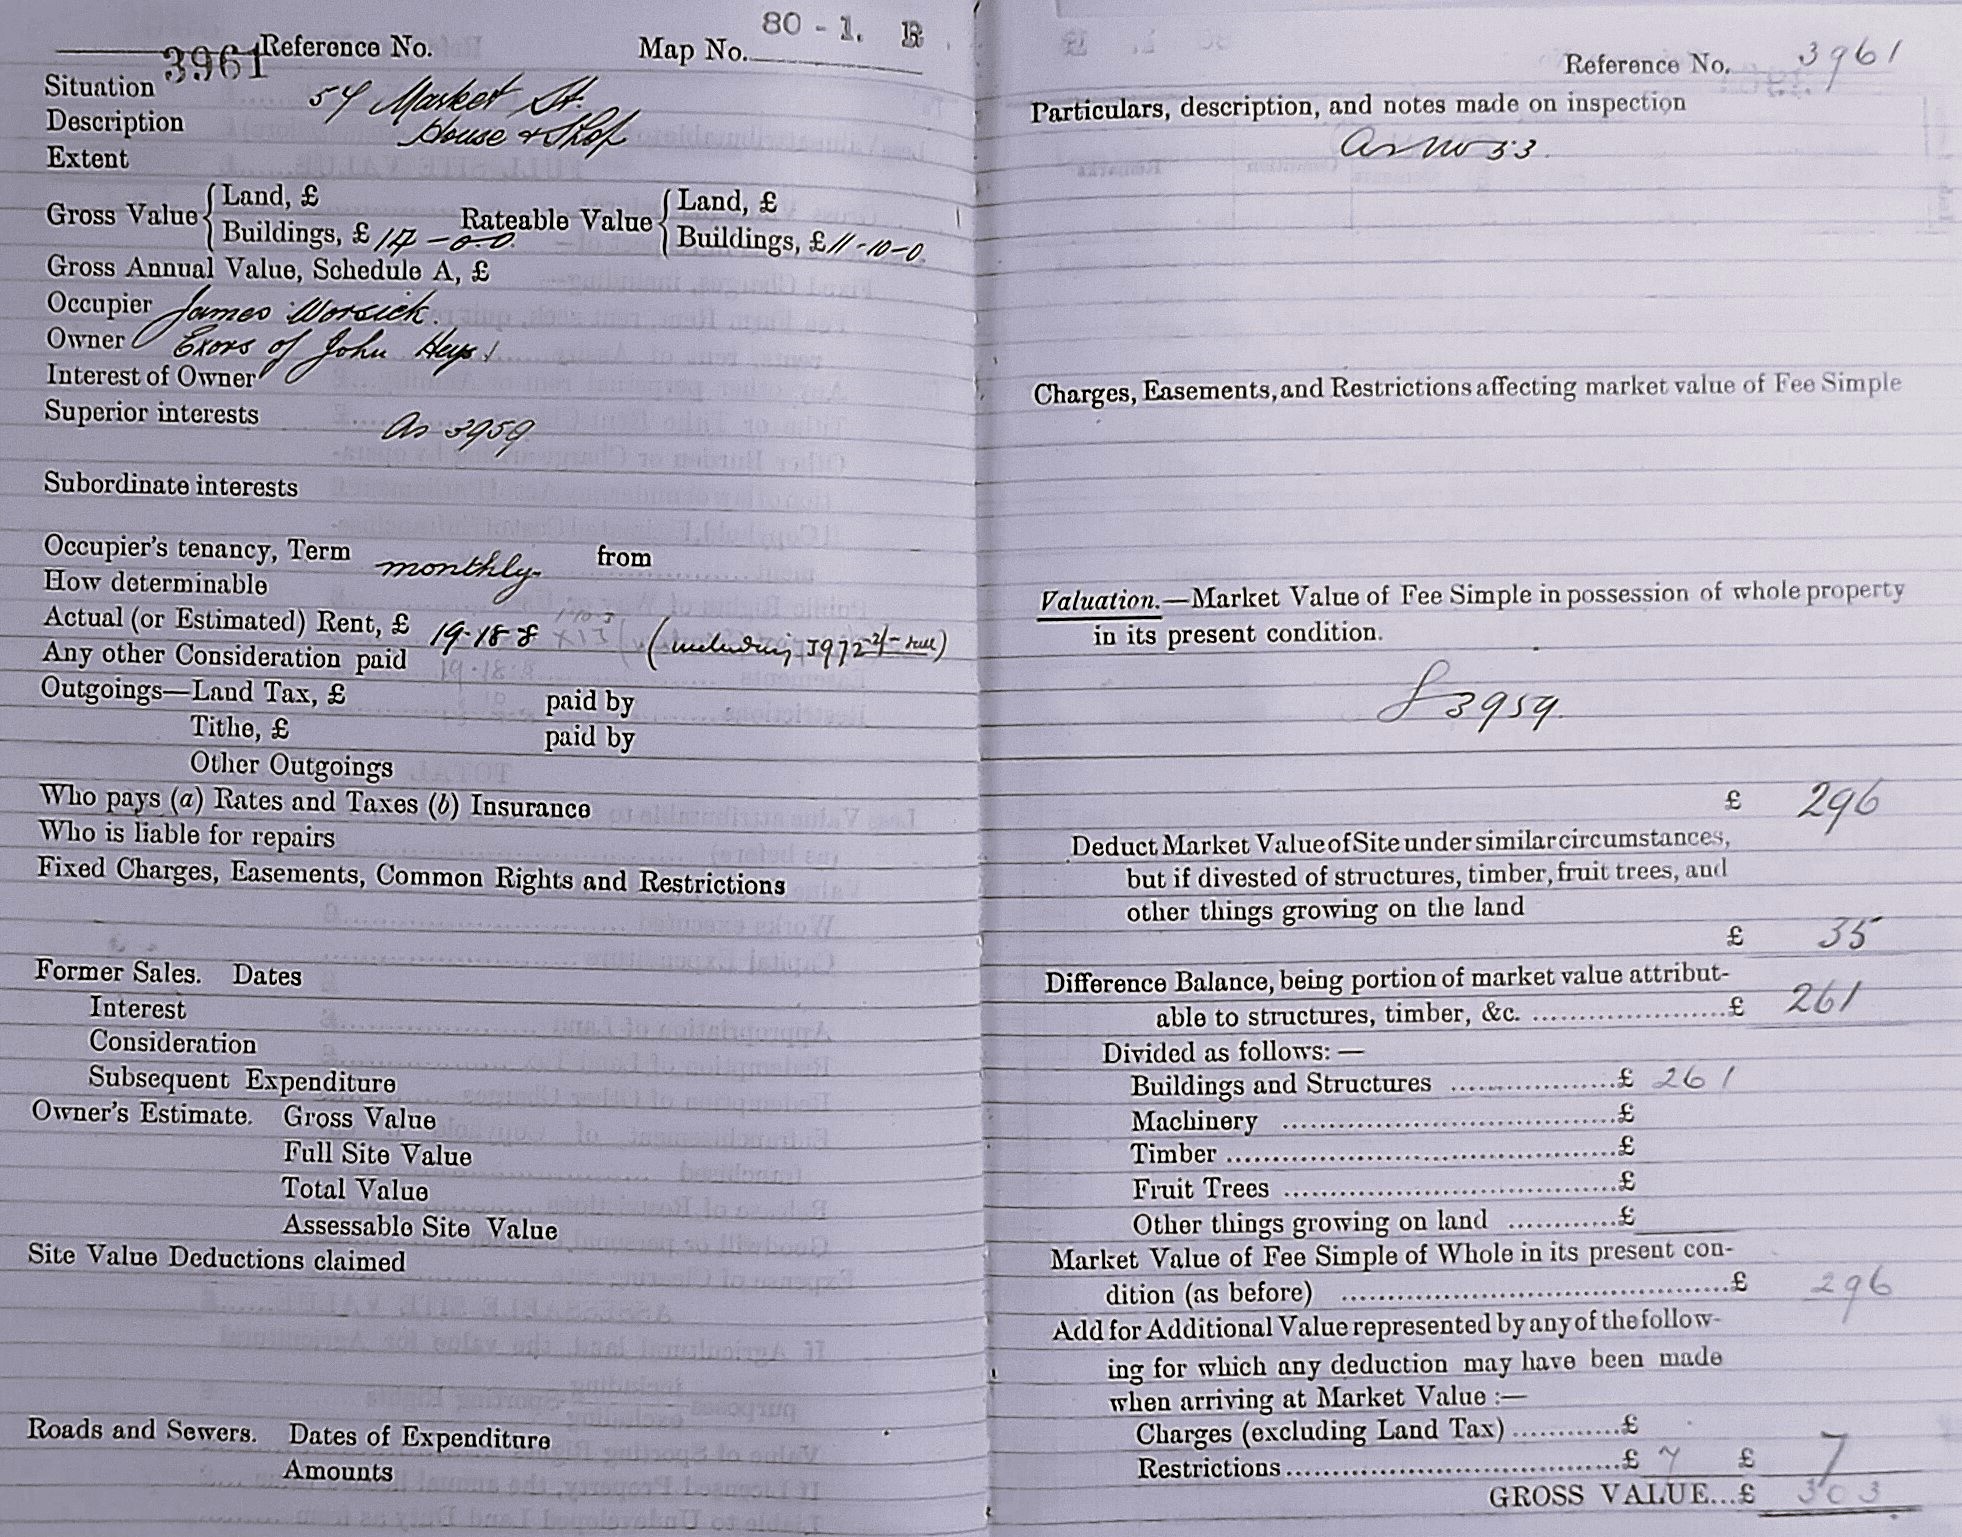 3961 Reference No. Map No. 80 - 1. B
Situation 54 Market St.
Description House & Shop
Extent
Gross Value { Land, £ Rateable Value { Land, £
Buildings, £ 14-0-0. Buildings, £ 11-10-0.
Gross Annual Value, Schedule A, £
Occupier James Worsick.
Owner Exors of John Heys
Interest of Owner
Superior interests As 3959
Subordinate interests
Occupier's tenancy, Term monthly. from
How determinable
Actual (or Estimated) Rent, £ 19-18-8 × 13 (including 3972 2/-
Any other Consideration paid 19-18-8
Outgoings—Land Tax, £ paid by
Tithe, £ paid by
Other Outgoings
Who pays (a) Rates and Taxes (b) Insurance
Who is liable for repairs
Fixed Charges, Easements, Common Rights and Restrictions
Former Sales. Dates
Interest
Consideration
Subsequent Expenditure
Owner's Estimate. Gross Value
Full Site Value
Total Value
Assessable Site Value
Site Value Deductions claimed
Roads and Sewers. Dates of Expenditure
Amounts
Reference No. 3961
Particulars, description, and notes made on inspection
As no 53.
Charges, Easements, and Restrictions affecting market value of Fee Simple
Valuation.—Market Value of Fee Simple in possession of whole property
in its present condition.
3959.
£ 296
Deduct Market Value of Site under similar circumstances,
but if divested of structures, timber, fruit trees, and
other things growing on the land
£ 35
Difference Balance, being portion of market value attribut-
able to structures, timber, &c. ......................£ 261
Divided as follows: —
Buildings and Structures ...................£ 261
Machinery ......................................£
Timber .............................................£
Fruit Trees ......................................£
Other things growing on land ............£
Market Value of Fee Simple of Whole in its present con-
dition (as before) ............................................£ 296
Add for Additional Value represented by any of the follow-
ing for which any deduction may have been made
when arriving at Market Value :—
Charges (excluding Land Tax) ............£
Restrictions......................................£ 7 £ 7
GROSS VALUE...£ 303